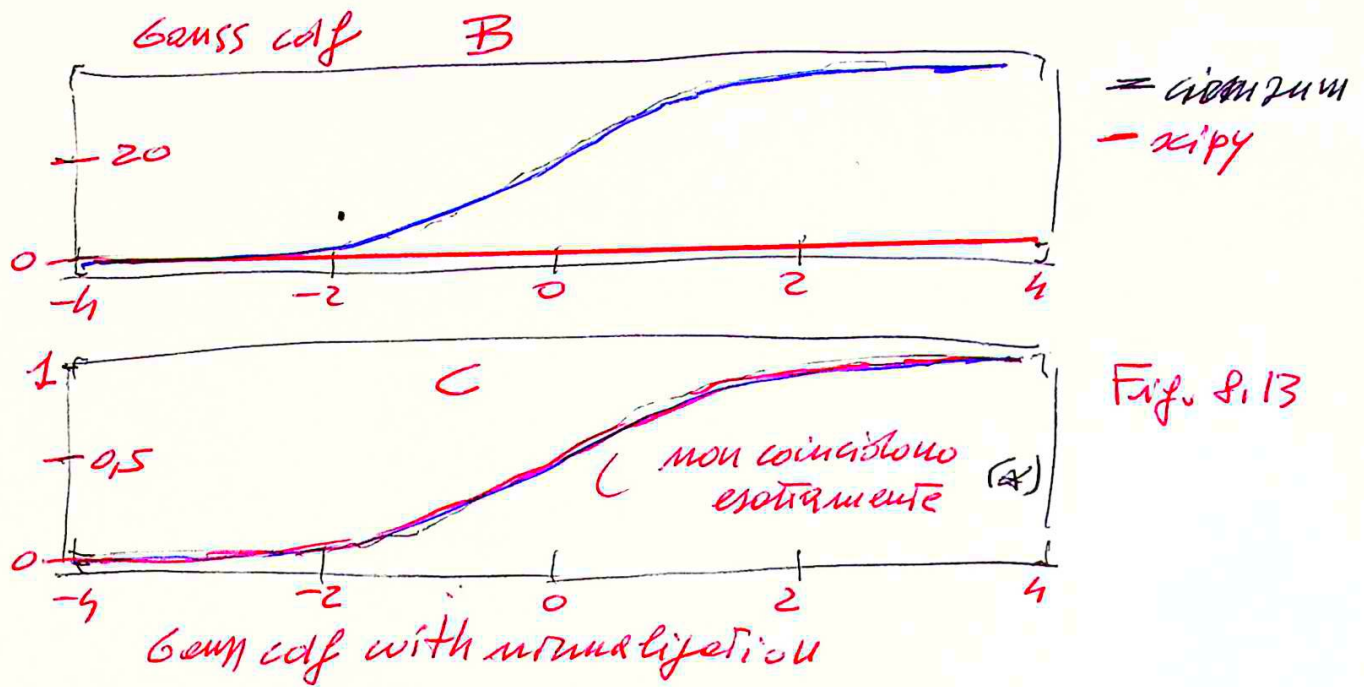 Gauss cdf B
= cumsum
- scipy
20
0
-4 -2 0 2 4
1
C
Fig. 8.13
0,5
( non coincidono
esattamente (*)
0
-4 -2 0 2 4
Gauss cdf with normalization